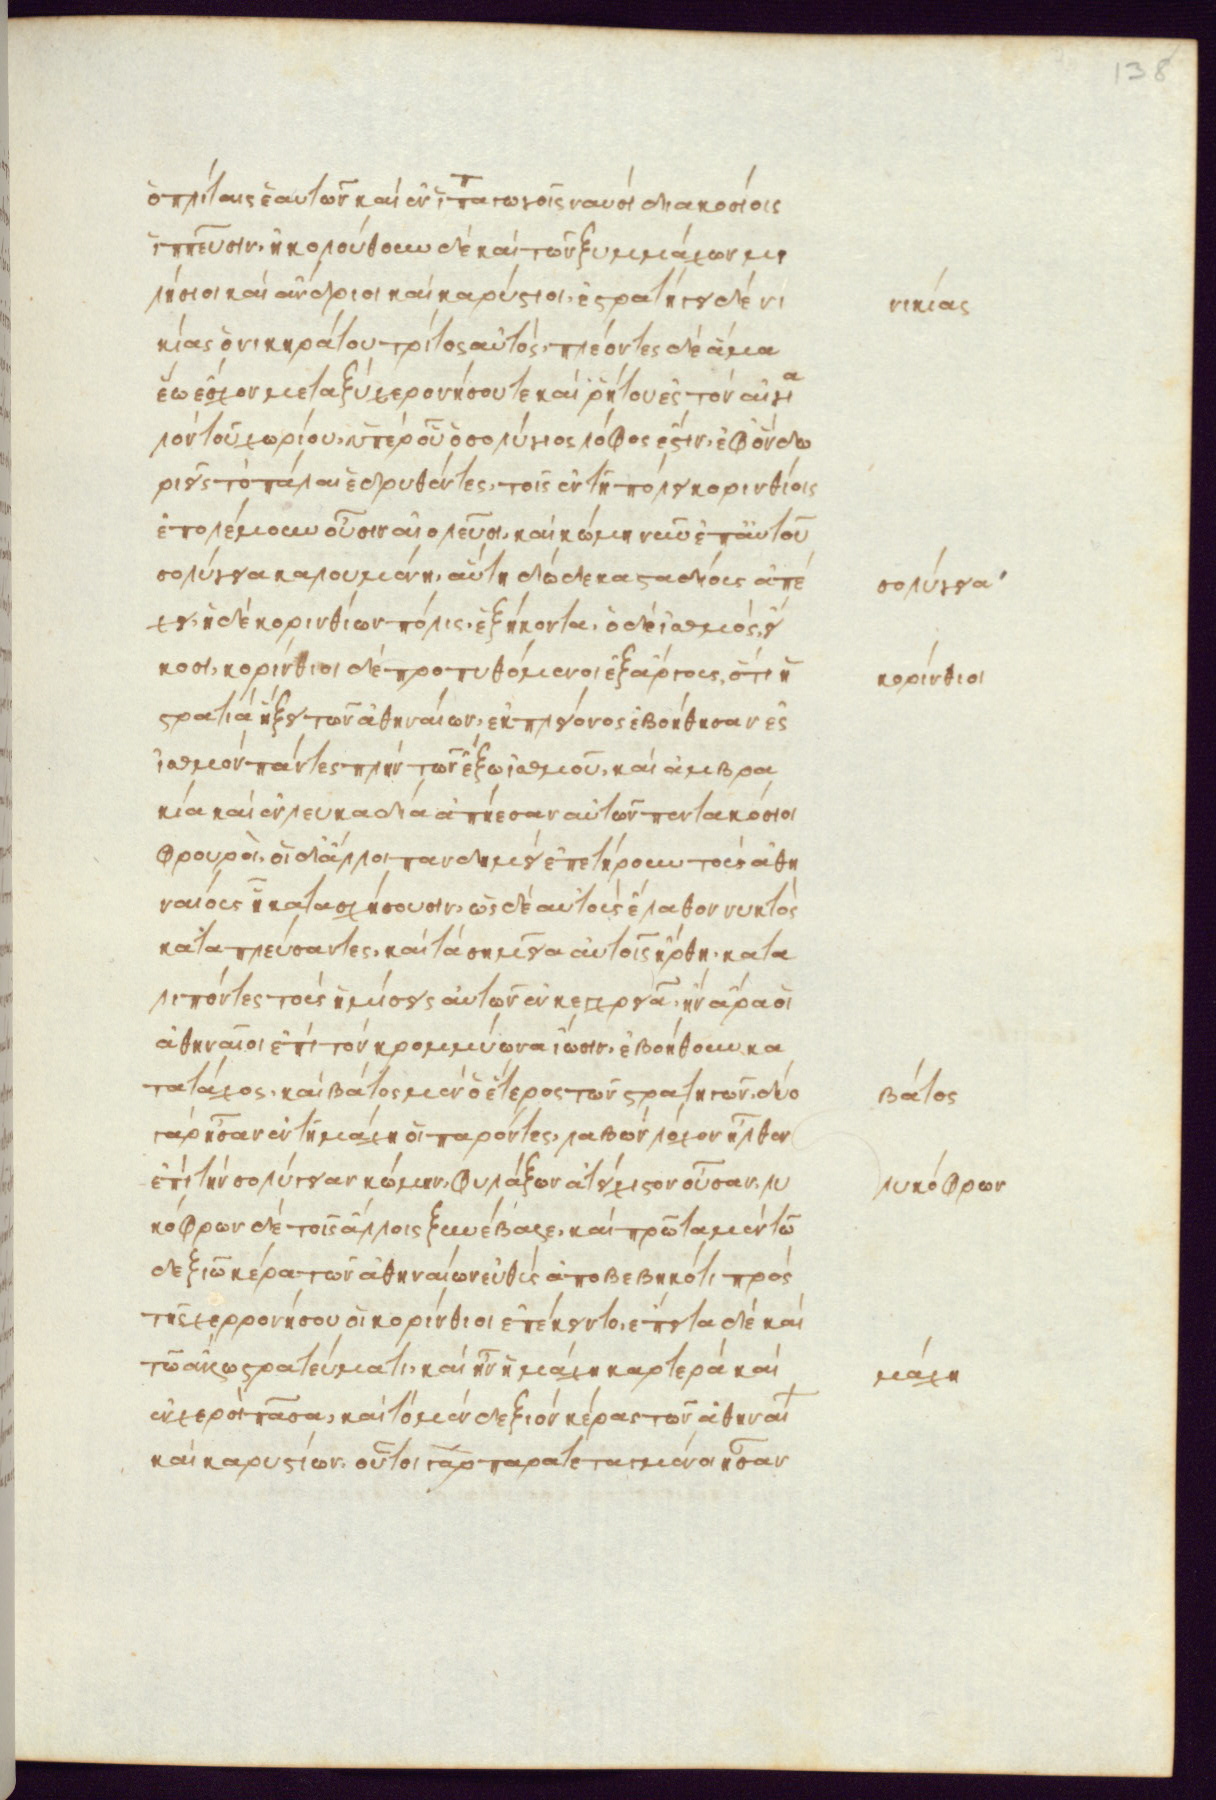 138
ὁπλίταις ἑαυτῶν καὶ ἐν ἱππαγωγοῖς ναυσὶ διακοσίοις
ἱππεῦσιν. ἠκολούθουν δὲ καὶ τῶν ξυμμάχων μι
λήσιοι καὶ ἄνδριοι καὶ καρύστιοι. ἐστρατήγει δὲ νι
νικίας
κίας ὁ νικηράτου τρίτος αὐτός. πλέοντες δὲ ἅμα
ἕῳ ἔσχον μεταξὺ χερονήσου τε καὶ ῥήτου ἐς τὸν αἰγια
λὸν τοῦ χωρίου, ὑπὲρ οὗ ὁ σολύγιος λόφος ἐστίν. ἐφ' ὃν δω
ριεῖς τὸ πάλαι ἱδρυθέντες, τοῖς ἐν τῇ πόλει κορινθίοις
ἐπολέμουν οὖσιν αἰολεῦσι. καὶ κώμη νῦν ἐπ' αὐτοῦ
σολύγεια καλουμένη. αὕτη δώδεκα σταδίους ἀπέ
σολύγεια
χει. ἡ δὲ κορινθίων πόλις, ἑξήκοντα. ὁ δὲ ἰσθμός, εἴ
κοσι. κορίνθιοι δὲ προπυθόμενοι ἐξ ἄργους, ὅτι ἡ
κορίνθιοι
στρατιὰ ἥξει τῶν ἀθηναίων, ἐκ πλείονος ἐβοήθησαν ἐς
ἰσθμὸν πάντες πλὴν τῶν ἔξω ἰσθμοῦ. καὶ ἀμβρα
κία καὶ ἐν λευκαδία ἀπῄεσαν αὐτῶν πεντακόσιοι
φρουροὶ. οἱ δ' ἄλλοι πανδημεὶ ἐπετήρουν τοὺς ἀθη
ναίους ᾗ κατασχήσουσιν. ὡς δὲ αὐτοὺς ἔλαθον νυκτὸς
καταπλεύσαντες, καὶ τὰ σημεῖα αὐτοῖς ἤρθη. κατα
λιπόντες τοὺς ἡμίσεις αὐτῶν ἐν κεγχρειᾷ. ἢν ἄρα οἱ
ἀθηναῖοι ἐπὶ τὸν κρομμύωνα ἴωσιν. ἐβοήθουν κα
τατάχος. καὶ βάτος μὲν ὁ ἕτερος τῶν στρατηγῶν. δύο
βάτος
γὰρ ἦσαν ἐν τῇ μάχη οἱ παρόντες, λαβὼν λόχον ἦλθεν
ἐπὶ τὴν σολύγειαν κώμην. φυλάξων ἀτείχιστον οὖσαν. λυ
λυκόφρων
κόφρων δὲ τοῖς ἄλλοις ξυνέβαλε. καὶ πρῶτα μὲν τῷ
δεξιῷ κέρα τῶν ἀθηναίων εὐθὺς ἀποβεβηκότι πρὸς
τῆς χερρονήσου οἱ κορίνθιοι ἐπέκειντο. ἔπειτα δὲ καὶ
τῷ ἄλλῳ στρατεύματι. καὶ ἦν ἡ μάχη καρτερὰ καὶ
μάχη
ἐν χερσὶ πᾶσα. καὶ τὸ μὲν δεξιὸν κέρας τῶν ἀθηναί
καὶ καρυστίων. οὗτοι γὰρ παρατεταγμένοι ἦσαν